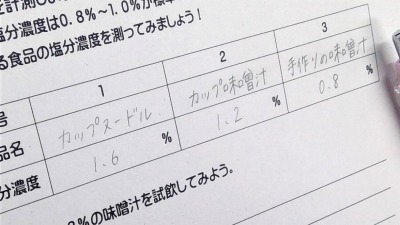 を計測
塩分濃度は0.8%~1.0%が標準
る食品の塩分濃度を測ってみましょう!
号 1 2 3
品名 カップヌードル カップ味噌汁 手作りの味噌汁
分濃度 1.6 % 1.2 % 0.8 %
%の味噌汁を試飲してみよう。